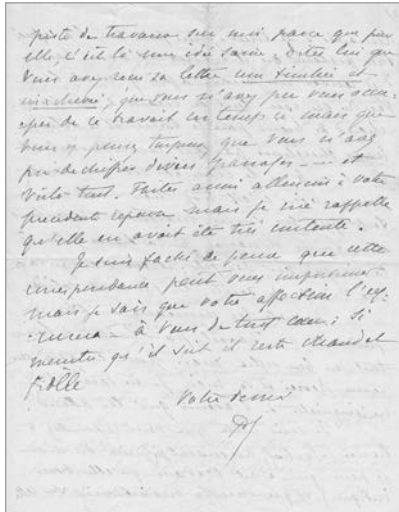 poste de travaux sur moi, parce que pour
elle c'est là une idée saine, dites lui que
vous avez reçu sa lettre non timbrée et
inachevée, que vous n'avez pu vous occu-
per de ce travail en temps ci mais que
vous y pensez toujours, que vous n'avez
pu déchiffrer divers passages et
voilà tout. Faites aussi allusion à votre
précédent réponse mais je me rappelle
qu'elle en avait été très contente.
Je suis fâché de penser que cette
correspondance peut vous
mais je sais que votre affection l'ex-
à vous de tout cœur; si
qu'il soit il reste chaud et
fidèle
Votre